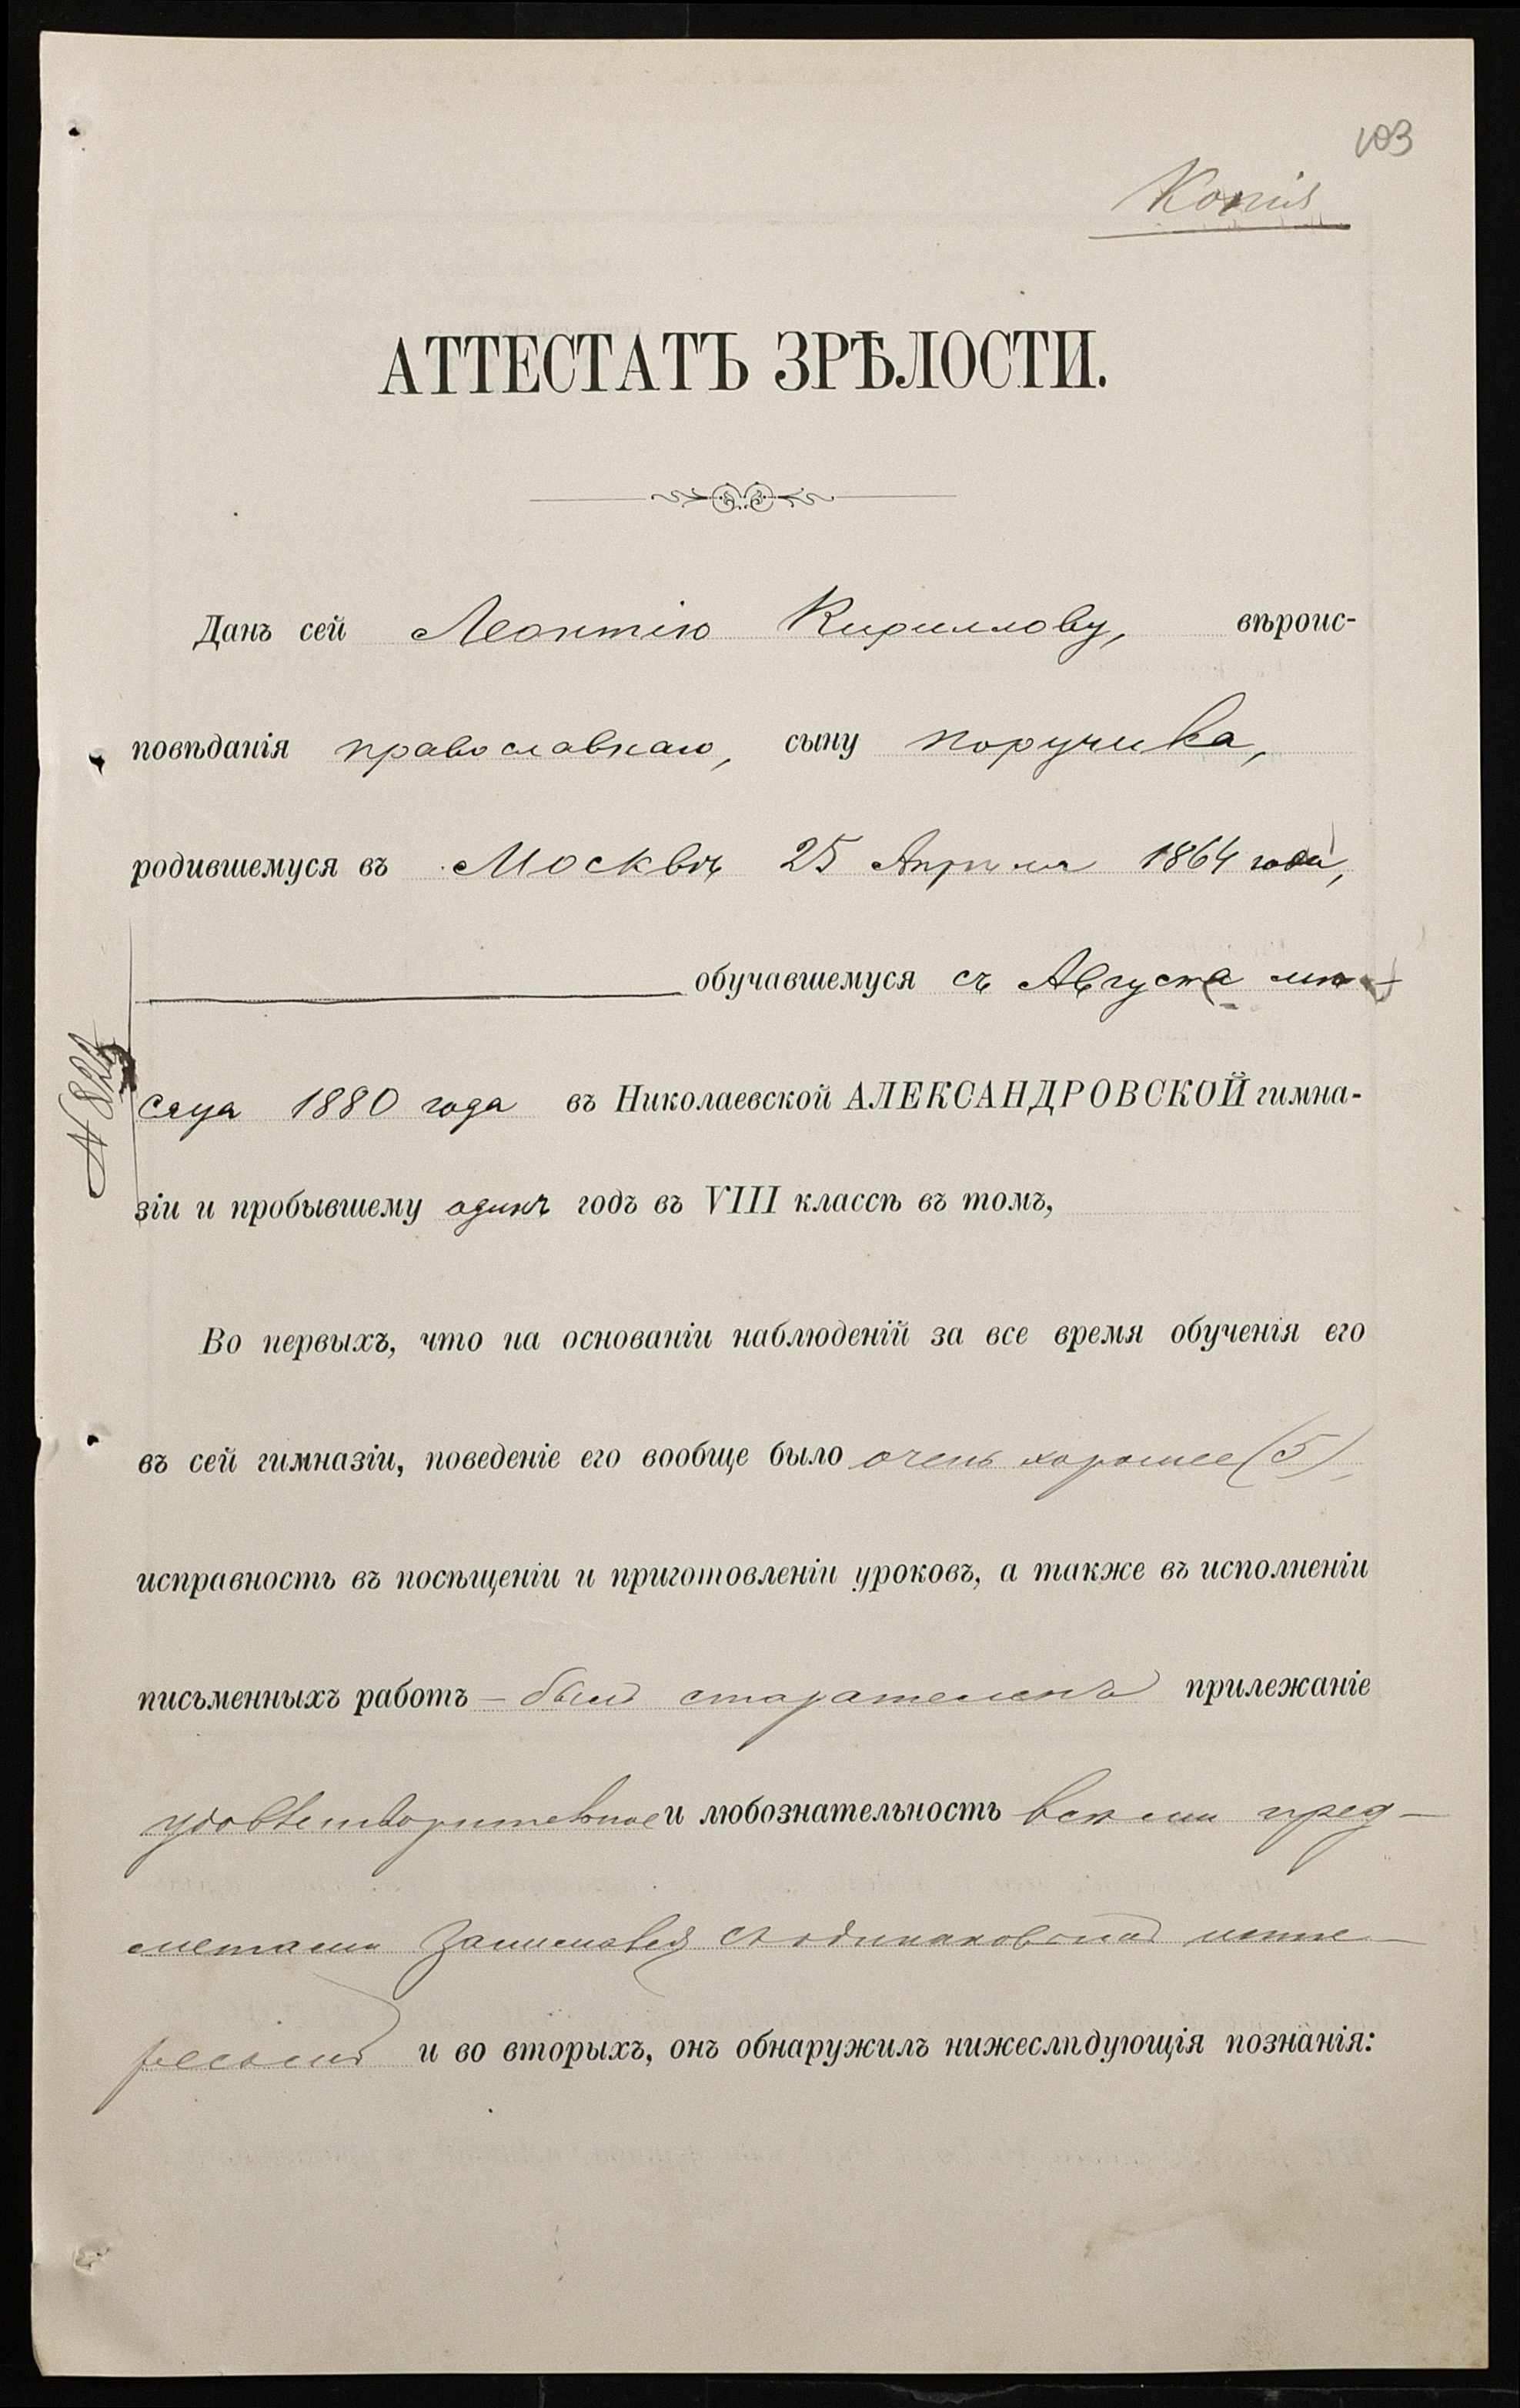 103
Копія
АТТЕСТАТЪ ЗРѢЛОСТИ.
Данъ сей Леонтію Кириллову, вѣроис-
повѣданія православнаго, сыну поручика,
родившемуся въ Москвѣ 25 Апрѣля 1864 года,
обучавшемуся съ Августа мѣ-
сяца 1880 года въ Николаевской АЛЕКСАНДРОВСКОЙ гимна-
зіи и пробывшему одинъ годъ въ VIII классѣ въ томъ,
Во первыхъ, что на основаніи наблюденій за все время обученія его
въ сей гимназіи, поведеніе его вообще было очень хорошее (5),
исправность въ посѣщеніи и приготовленіи уроковъ, а также въ исполненіи
письменныхъ работъ – былъ старателенъ прилежаніе
удовлетворительное и любознательность всѣми пред-
метами занимался съ одинаковымъ инте-
ресомъ и во вторыхъ, онъ обнаружилъ нижеслѣдующія познанія: